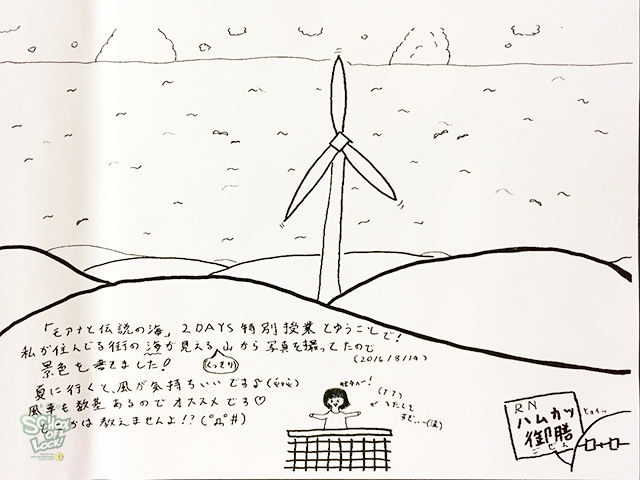 「モアナと伝説の海」2DAYS特別授業とゆうことで!
私が住んでる街の海が見える山から写真を撮ってたので
(2016/8/14)
景色を書きました!
くっきり
夏に行くと、風が気持ちいいです♪
風車も数基あるのでオススメです♡
教えませんよ!?(°д°#)
RN
ハムカツ
御膳
ごぜん
School
of
Lock!